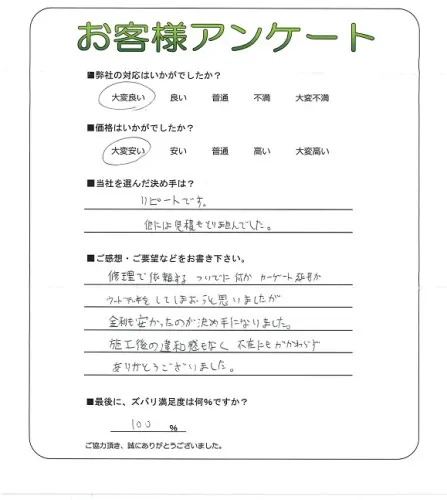 お客様アンケート
■弊社の対応はいかがでしたか？
大変良い 良い 普通 不満 大変不満
■価格はいかがでしたか？
大変安い 安い 普通 高い 大変高い
■当社を選んだ決め手は？
リピートです。
他には見積もとりませんでした。
■ご感想・ご要望などをお書き下さい。
修理で依頼する ついでに何か カーゲート
ウッド をしてしまおうと思いましたが
金利も安かったのが決め手になりました。
施工後の違和感もなく 不在にもかかわらず
ありがとうございました。
■最後に、ズバリ満足度は何％ですか？
100 ％
ご協力頂き、誠にありがとうございました。